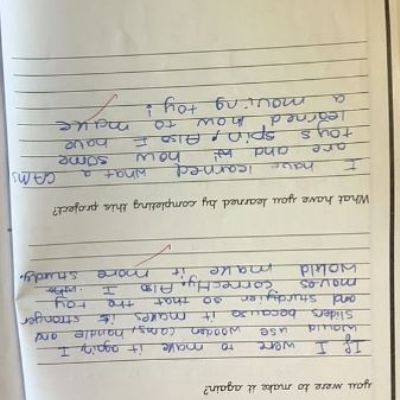 you were to make it again?
If I were to make it again I
would use wooden cams, handle and
sliders because it makes it stronger
and sturdyier so that the toy
moves correctly. Also I
would make it more sturdy.
What have you learned by completing this project?
I have learned what a CAMs
are and how some
toys spin, Also I have
learned how to make
a moving toy!